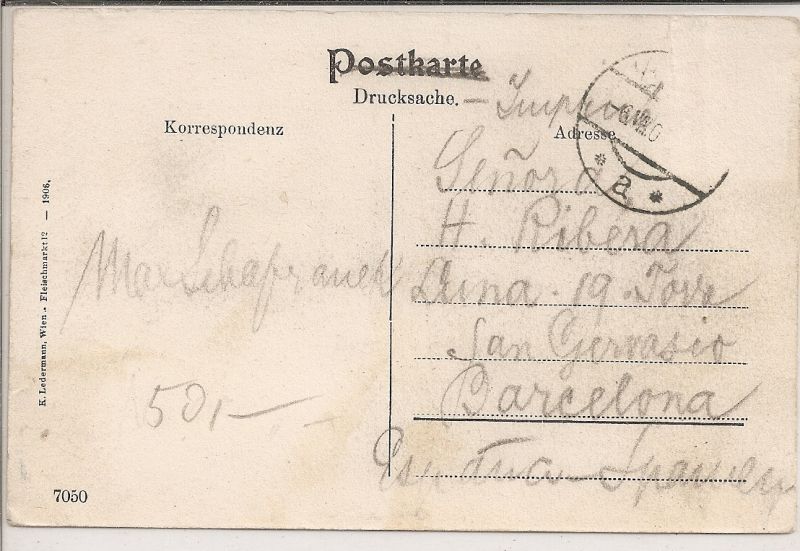 Postkarte
Drucksache. -
Korrespondenz
Adresse
Señora
H. Ribera
19. Torre
San Gervasio
Barcelona
España - Spanien
Max Schafranek
50,-
a
K. Ledermann, Wien. - Fleischmarkt 12 - 1906.
7050